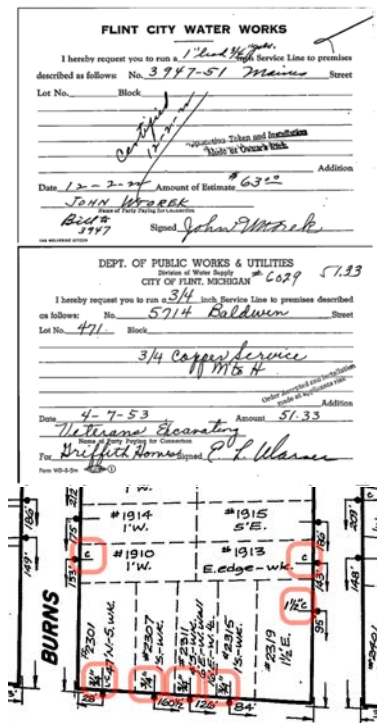 FLINT CITY WATER WORKS
I hereby request you to run a 1" lead 3/4 inch Service Line to premises
described as follows: No. 3947-51 Maines Street
Lot No. Block
Certified
12-2-2
Application Taken and Installation
Made at Owner's Risk
Addition
Date 12-2-2 Amount of Estimate $63.00
JOHN WTOREK
Name of Party Paying for Connection
Bill to
3947
Signed John Wtorek
THE WOLVERINE CITIZEN
DEPT. OF PUBLIC WORKS & UTILITIES
Division of Water Supply
CITY OF FLINT, MICHIGAN
# 6029 51.33
I hereby request you to run a 3/4 inch Service Line to premises described
as follows: No. 5714 Baldwin Street
Lot No. 471 Block
3/4 Copper Service
M to H
Order Accepted and Installation
made at applicants risk
Addition
Date 4-7-53 Amount 51.33
Veterans Excavating
Name of Party Paying for Connection
For Griffith Homes Signed
212
1'W.
186'
#1914
1'W.
#1915
5'E.
175'
186'
209'
149'
C
#1910
1'W.
#1913
E.edge-wk.
C
153'
143'
148'
1½"C
95'
BURNS
#2301
#2307
#2311
#2315
#2319
1½'E.
#2401
3/4"
3/4"
3/4"
3/4"
28'
160½'
126'
84'